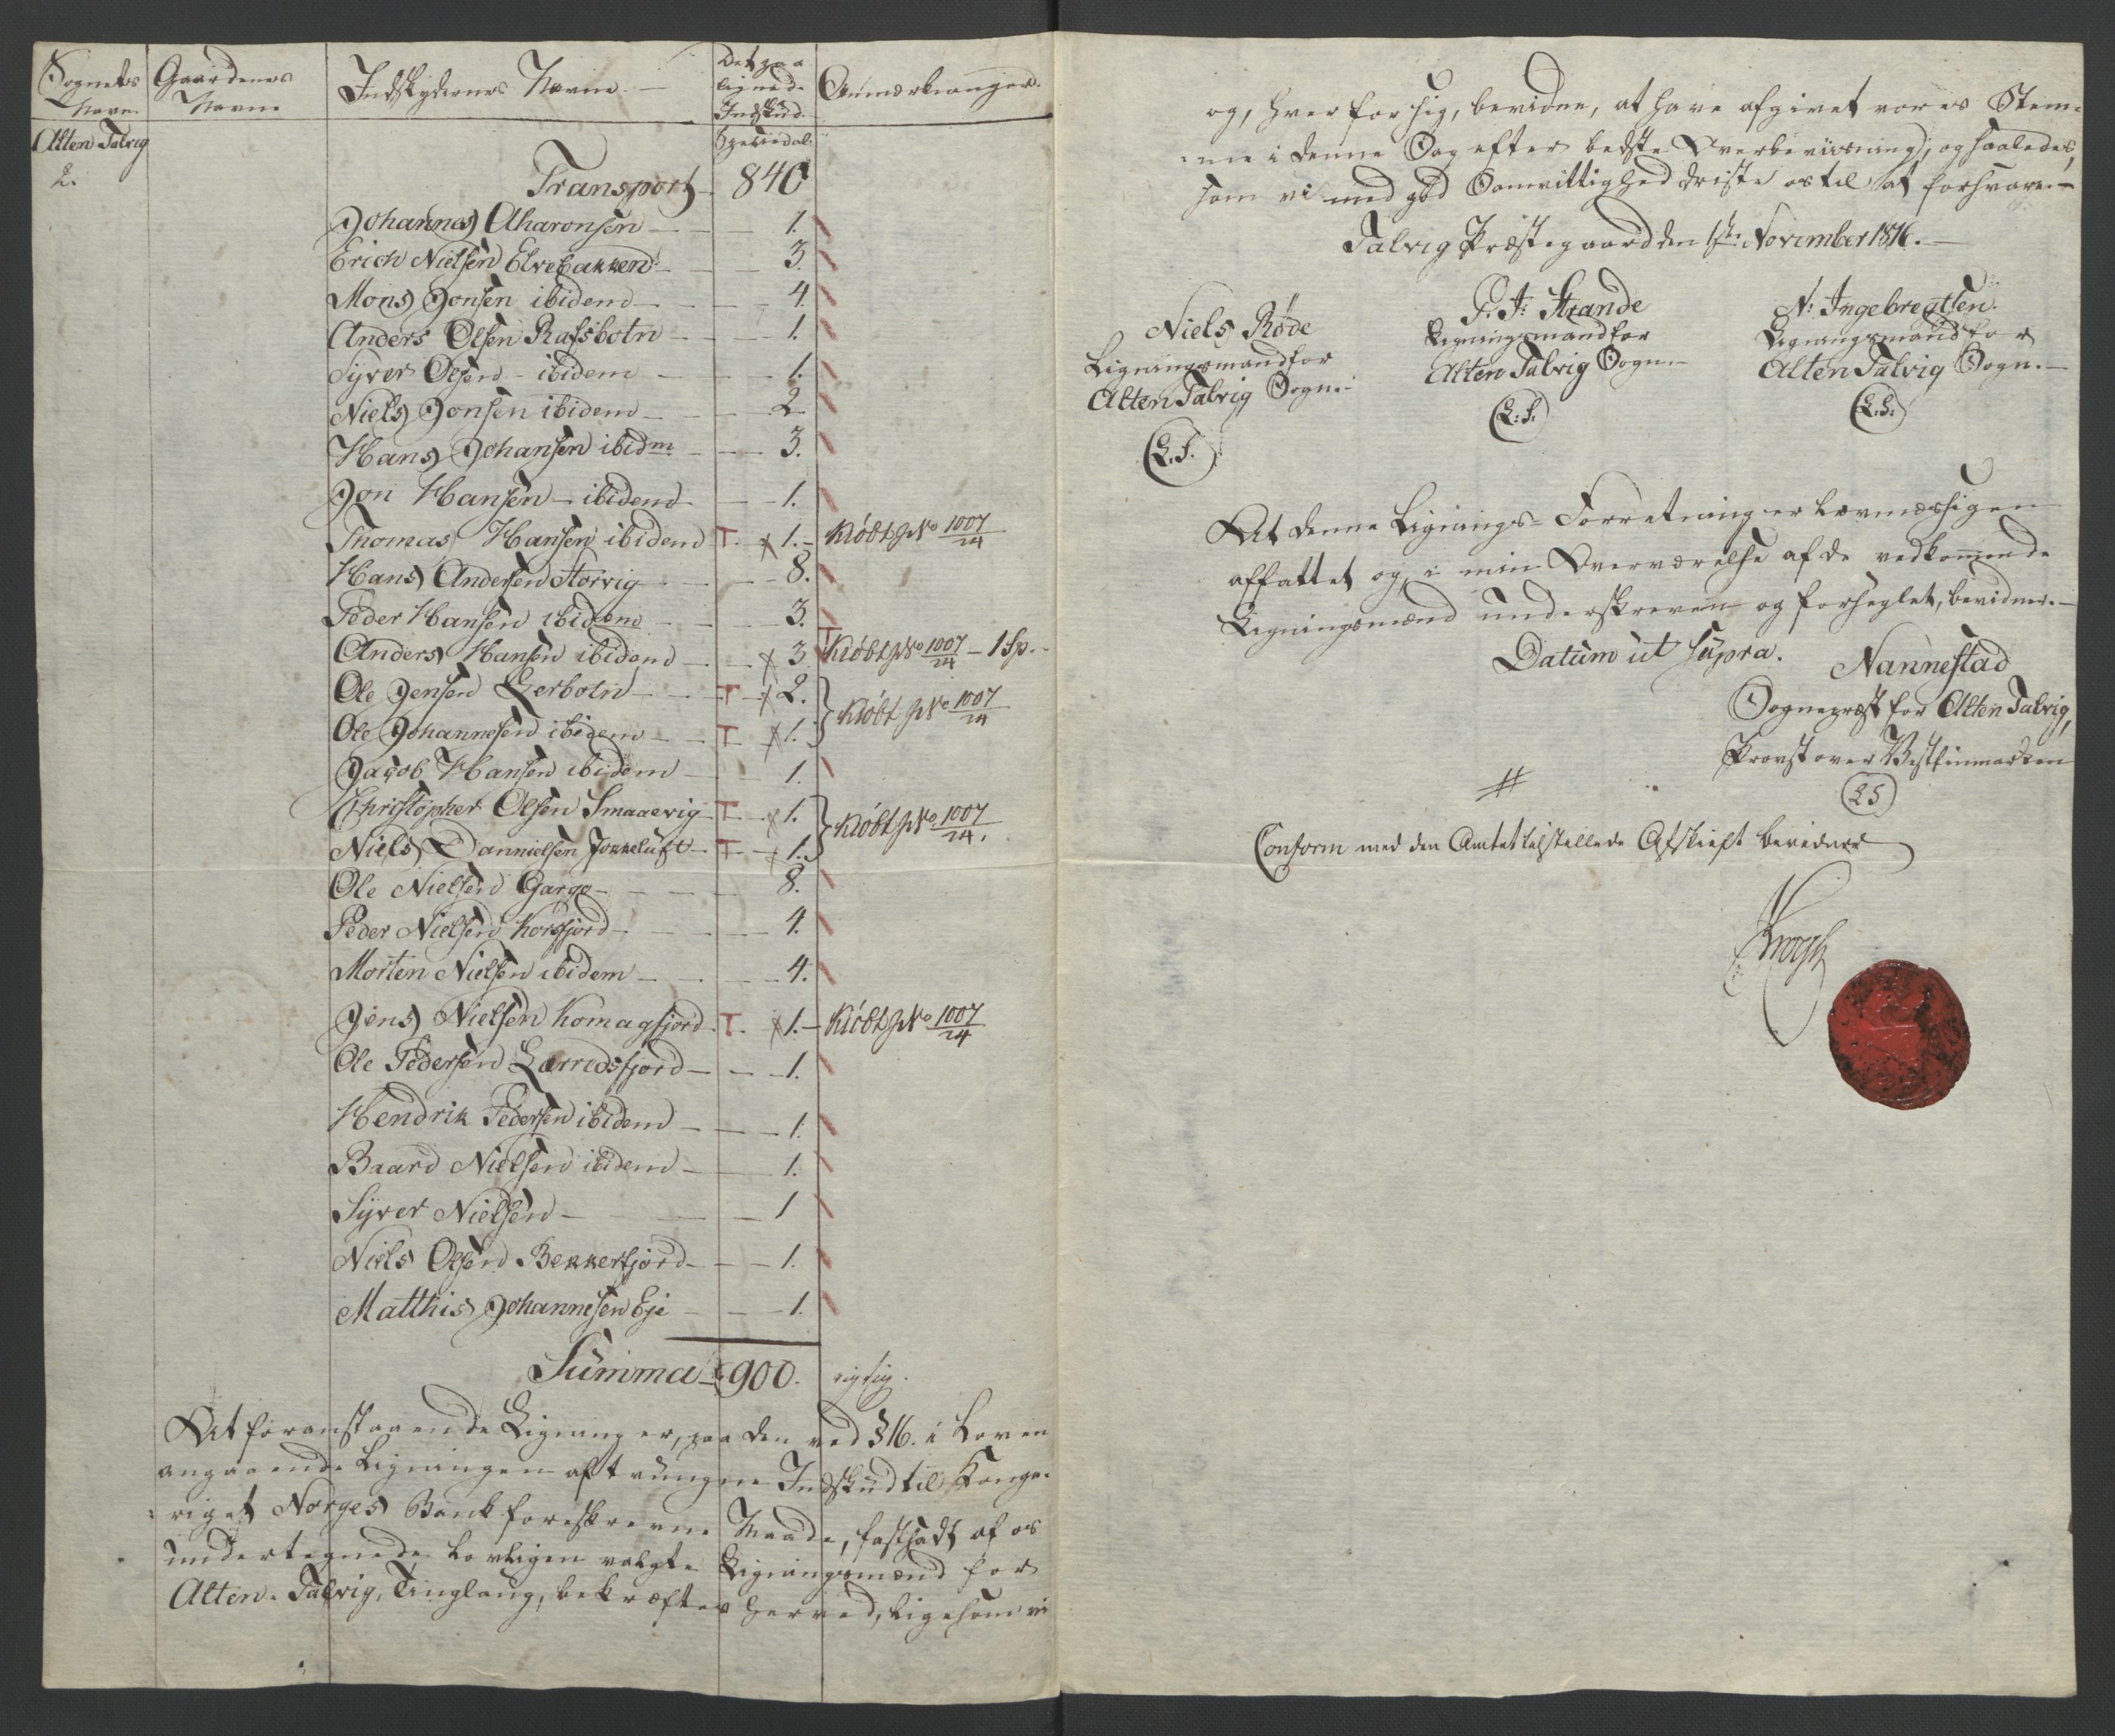 Sognets Navn | Gaardenes Navne | Indskydernes Navne | Det paa lignede Indskud. | Anmærkninger.
Alten Talvig | Speciedal:
2. | Transport | 840
Johannes Aharonsen | 1.
Erich Nielsen Elvebakken | 3.
Mons Jonsen ibidem | 4.
Anders Olsen Rafsbotn | 1.
Syver Olsen ibidem | 1.
Niels Jonsen ibidem | 2
Hans Johansen ibidm | 3.
Jon Hansen ibidem | 1.
Thomas Hansen ibidem | T. x 1. | Kiöbt p No 1007/24
Hans Andersen Storvig | 8.
Peder Hansen ibidem | 3.
Anders Hansen ibidem | x 3 | T Kiöbt p No 1007/24 - 1 Sp.
Ole Jensen Lerbotn | T x 2. | } Kiöbt p No 1007/24
Ole Johannesen ibidem | T x 1.
Jacob Hansen ibidem | 1.
Christopher Olsen Smaaevig | T x 1. | } Kiöbt p No 1007/24.
Niels Dannielsen Jokkeluft | T. x 1.
Ole Nielsen Gargo | 8.
Peder Nielsen Korsfjord | 4.
Morten Nielsen ibidem | 4.
Jens Nielsen Komagfjord | T. x 1. | Kiöbt p No 1007/24
Ole Pedersen Lærredsfjord | 1.
Hendrik Pedersen ibidem | 1.
Baard Nielsen ibidem | 1.
Syver Nielsen | 1
Niels Olsen Bekkerfjord | 1.
Matthis Johannesen Eje | 1.
Summa | 900. | rigtig.
At foranstaaende Ligning er, paa den ved § 16. i Loven
angaaende Ligningen af tvungne Indskud til Konge-
riget Norges Bank foreskrevne Maade, fastsadt af os
undertegnede lovligen valgte Ligningsmænd for
Alten-Talvig Tinglaug, bekræftes herved, ligesom vi
og, hver for sig, bevidne, at have afgivet vores Stem-
me i denne Sag efter bedste Overbeviisning, og saaledes,
som vi med god Samvittighed driste os til at forsvare.
Talvig Præstegaard den 1ste November 1816.
Niels Röde
Ligningsmand for
Alten Talvig Sogn.
(L.S.)
P. J: Strande
Ligningsmand for
Alten Talvig Sogn.
(L.S.)
N: Ingebregtsen.
Ligningsmand for
Alten Talvig Sogn.
(L.S.)
At denne Lignings-Forretning er lovmæssigen
affattet og i min Overværelse af de vedkommende
Ligningsmænd underskreven og forseglet, bevidner.
Datum ut supra. Nannestad
Sognepræst for Alten Talvig,
Provst over Vestfinmarken
(LS)
Conform med den Amtet tilstillede Afskrift bevidner
Krogh